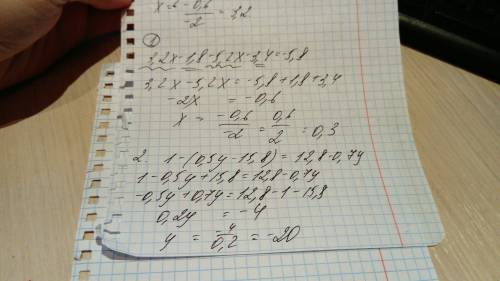 x = -0,6/-2 = 3,2
1
3,2x-1,8-5,2x-3,4=-5,8
3,2x-5,2x=-5,8+1,8+3,4
-2x = -0,6
x = -0,6/-2 = 0,6/2 = 0,3
2. 1-(0,5y-15,8)=12,8-0,7y
1-0,5y+15,8=12,8-0,7y
-0,5y+0,7y=12,8-1-15,8
0,2y = -4
y = -4/0,2 = -20